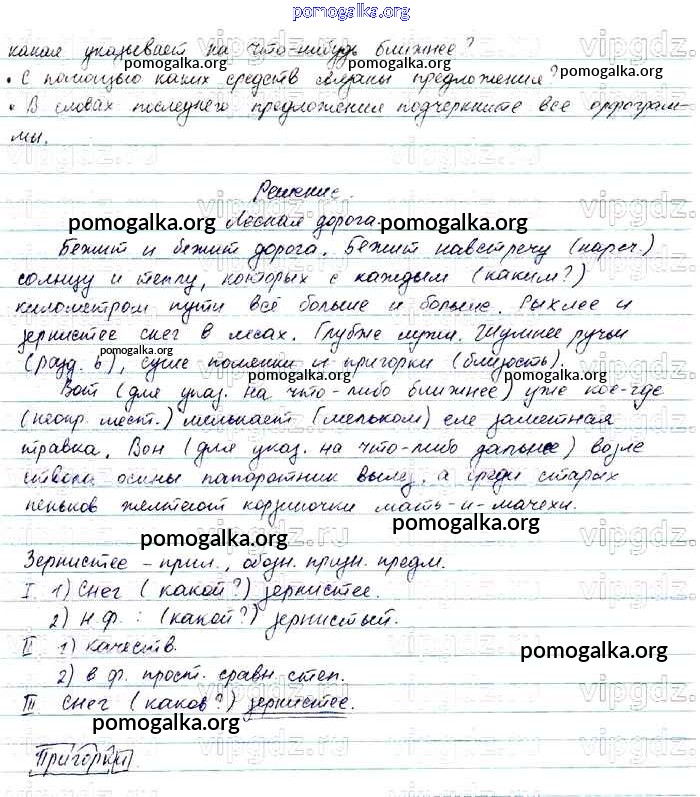 pomogalka.org
какая указывает на что-нибудь ближнее?
• С помощью каких средств связаны предложения?
• В словах последнего предложения подчеркните все орфограм-
мы.
Решение.
Лесная дорога.
Бежит и бежит дорога. Бежит навстречу (нареч.)
солнцу и теплу, которых с каждым (каким?)
километром пути всё больше и больше. Рыхлее и
зернистее снег в лесах. Глубже лужи. Шумнее ручьи
(разд. ь), суше полянки и пригорки (близость).
Вот (для указ. на что-либо ближнее) уже кое-где
(неопр. мест.) мелькает (мельком) еле заметная
травка. Вон (для указ. на что-либо дальнее) возле
ствола осины папоротник вылез, а среди старых
пеньков желтеют корзиночки мать-и-мачехи.
Зернистее – прил., обозн. призн. предм.
I 1) Снег (какой?) зернистее.
2) н.ф.: (какой?) зернистый.
II 1) качеств.
2) в ф. прост. сравн. степ.
III Снег (каков?) зернистее.
Пригорки.